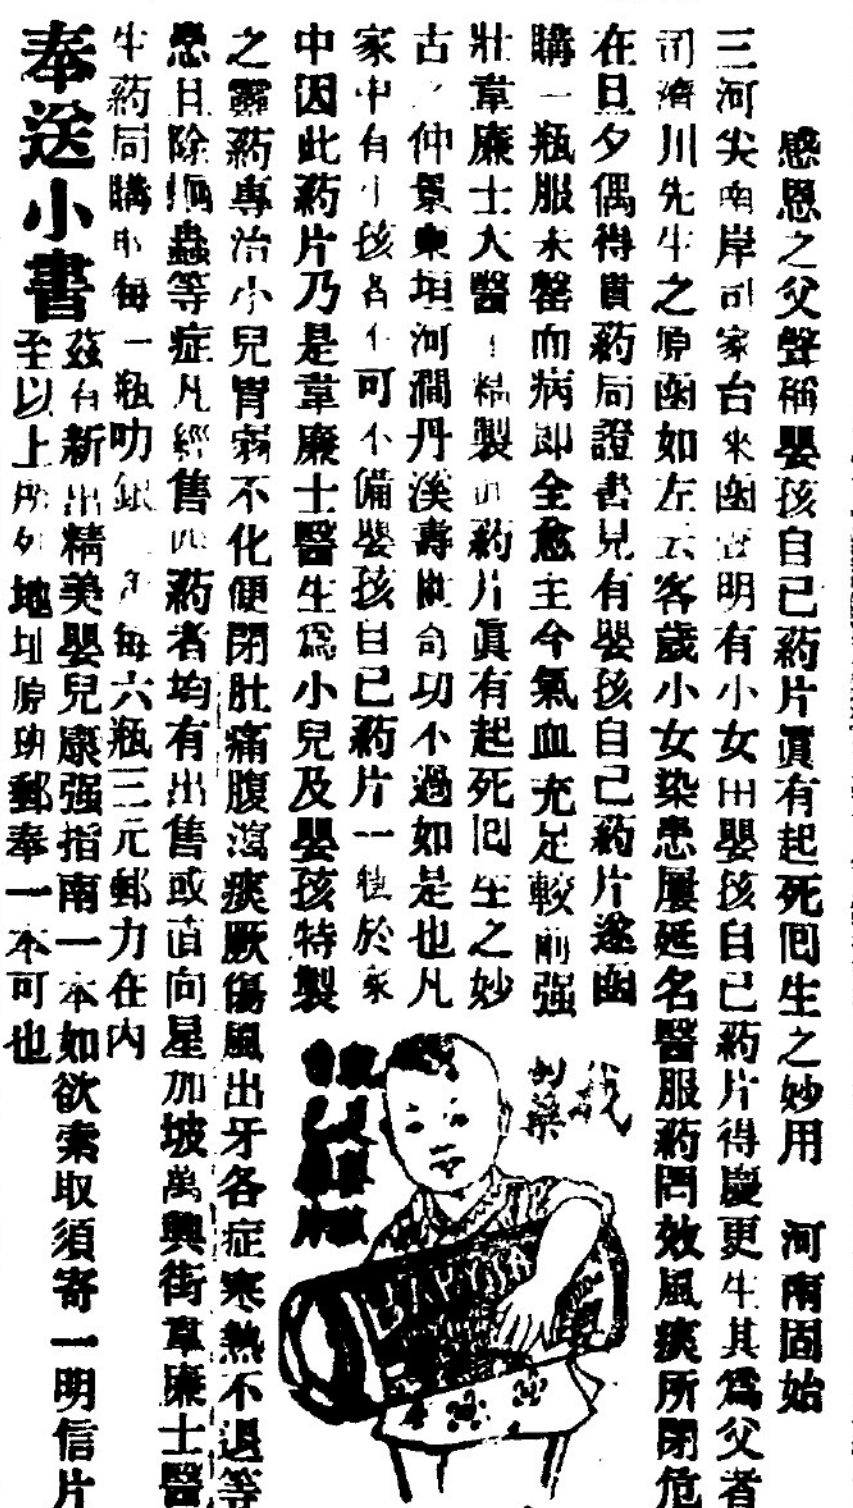 感恩之父聲稱嬰孩自己葯片眞有起死囘生之妙用　河南固始
三河尖南岸司家台來函言明有小女田嬰孩自己葯片得慶更生其爲父者
司濟川先生之原函如左云客歲小女染患屢延名醫服葯罔效風痰所閉危
在旦夕偶得貴葯局證書見有嬰孩自己葯片遂函
購一瓶服未罄而病即全愈至今氣血充足較前强
壯韋廉士大醫精製葯片眞有起死囘生之妙
古之仲景東垣河澗丹溪壽世司功不過如是也凡
家中有小孩者不可不備嬰孩自己葯片一種於家
中因此葯片乃是韋廉士醫生爲小兒及嬰孩特製
之靈葯專治小兒胃弱不化便閉肚痛腹瀉痰厥傷風出牙各症寒熱不退等
患且除蟲等症凡經售葯者均有出售或直向星加坡萬興街韋廉士醫
生葯局購取每一瓶叻銀每六瓶三元郵力在內
奉送小書
茲有新出精美嬰兒康强指南一本如欲索取須寄一明信片
至以上所列地址原班郵奉一本可也
自己葯片
BABY'S